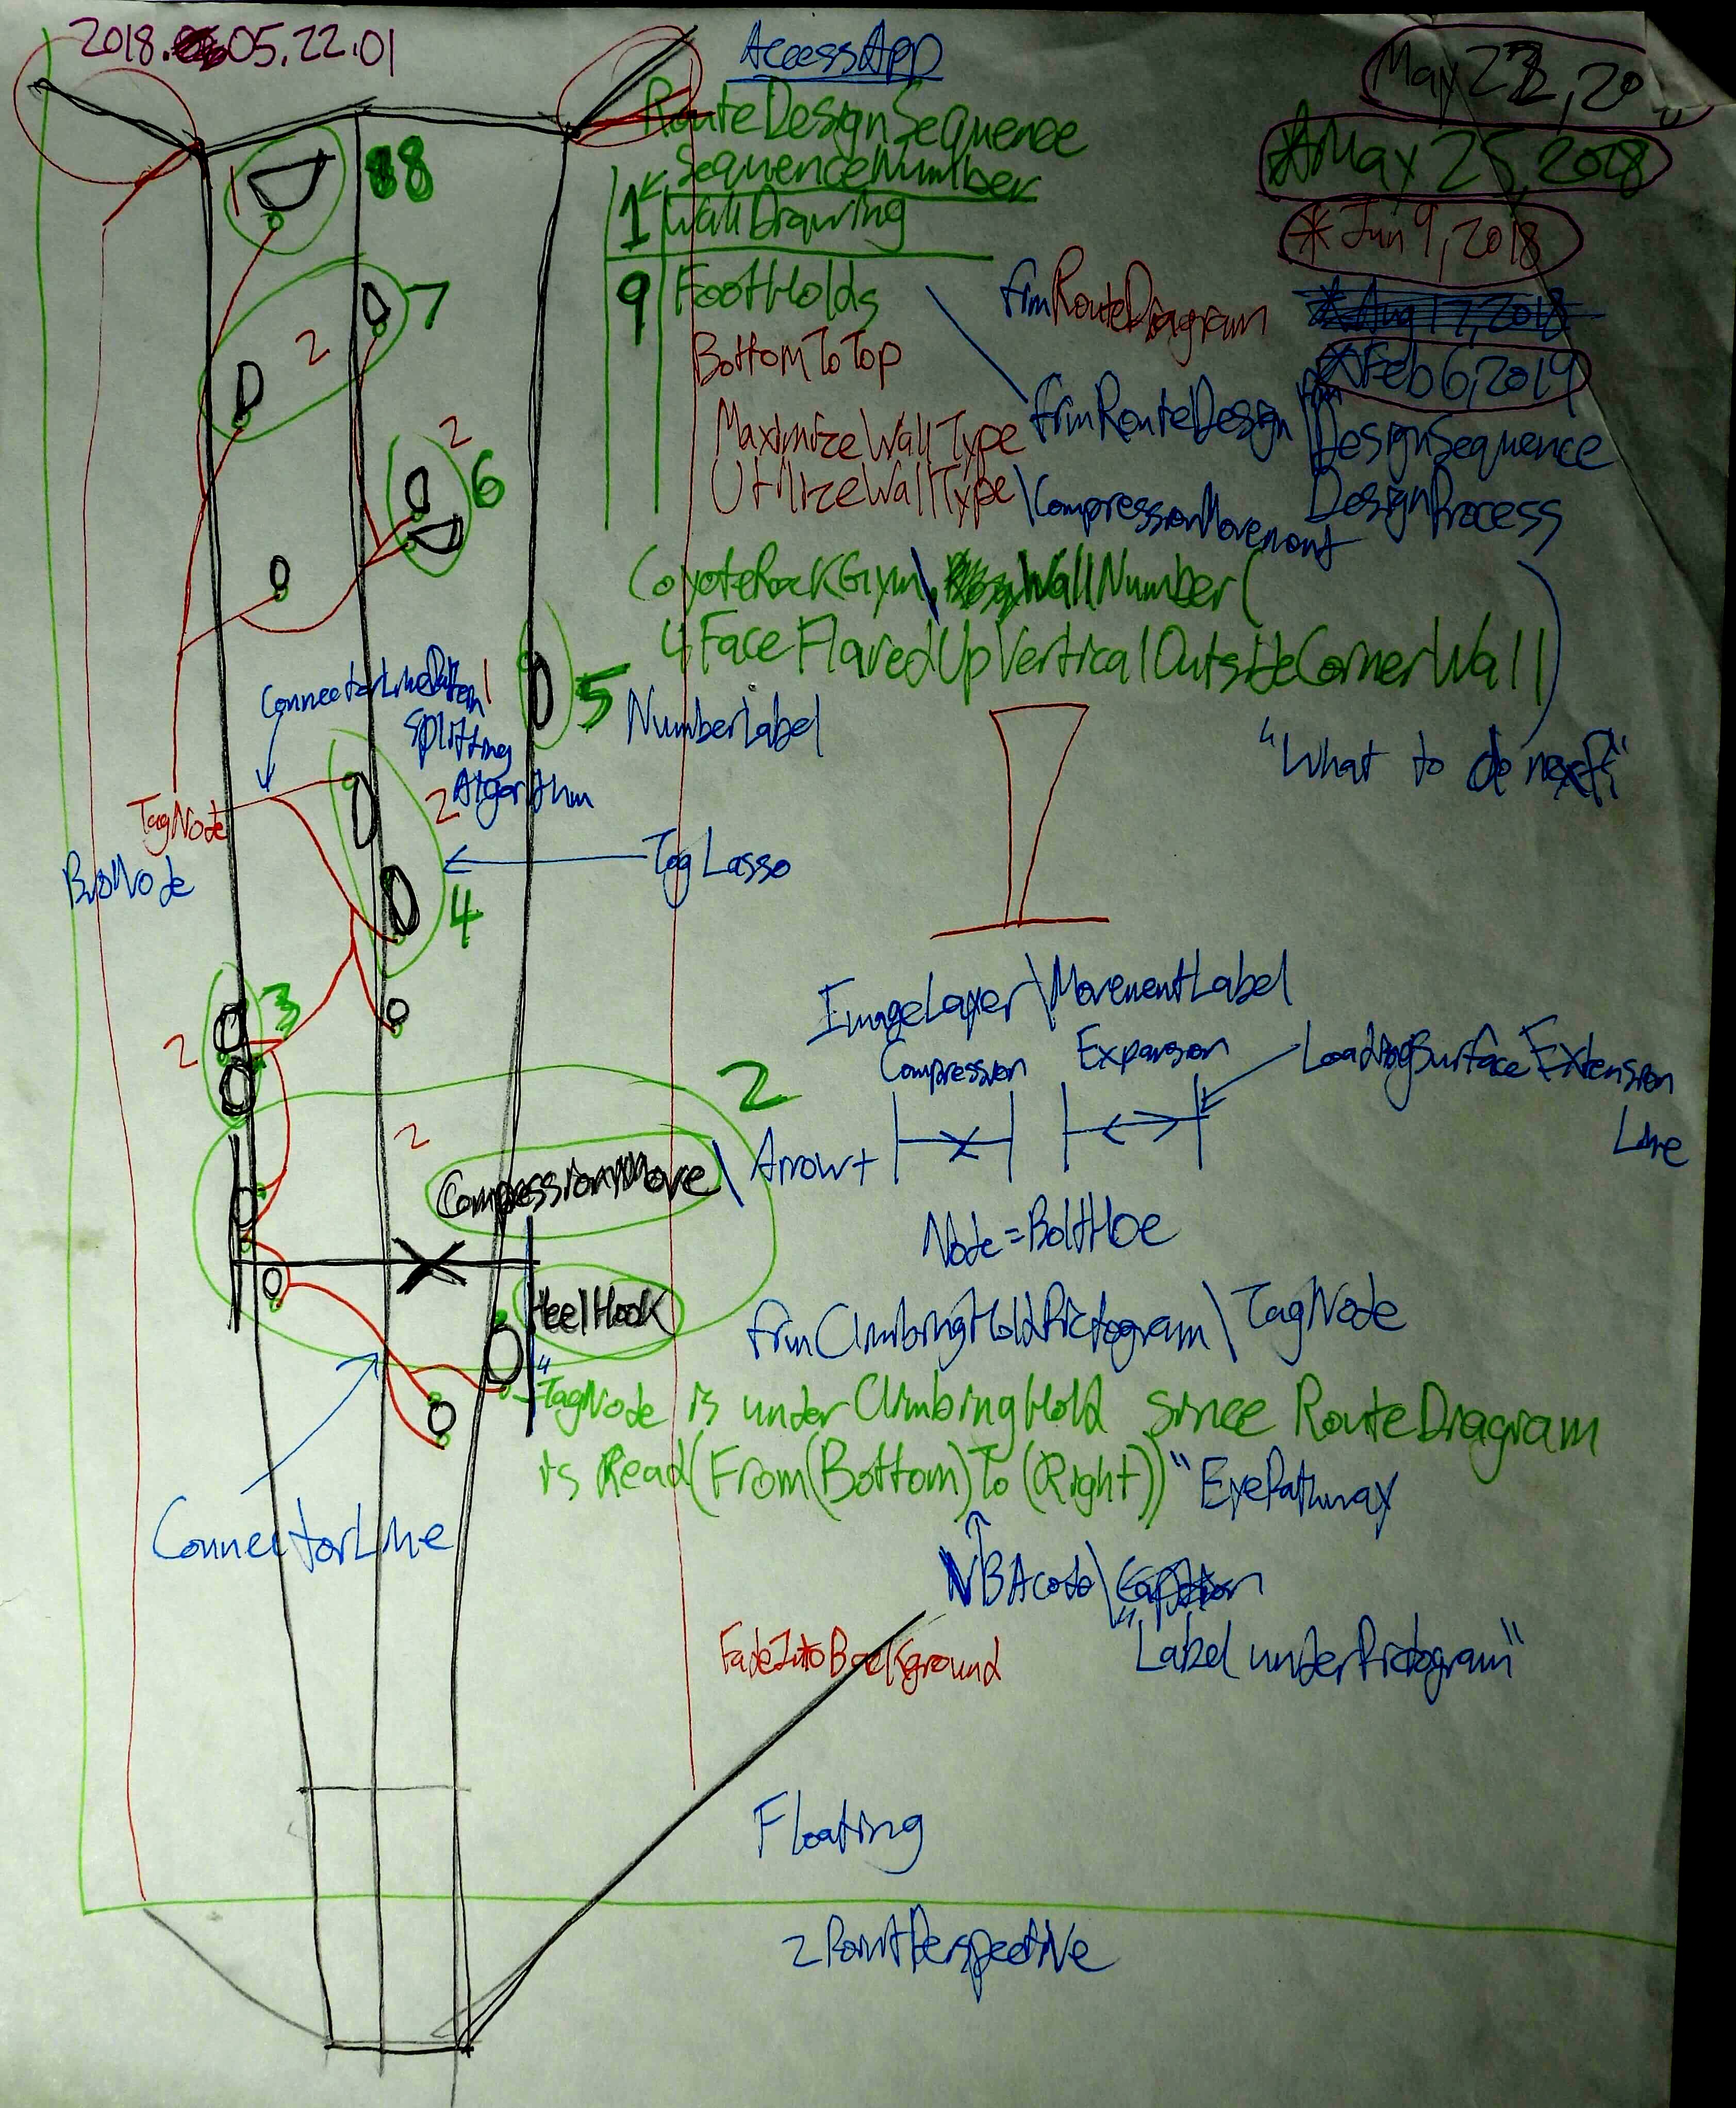 AccessApp
May 22, 20
RouteDesignSequence
*May 25, 2018
SequenceNumber
88
1 WallDrawing
1
*Jun 9, 2018
9 FootHolds
frmRouteDiagram
*Aug 17, 2018
7
2
BottomToTop
*Feb 6, 2019
MaximizeWallType
frmRouteDesign
DesignSequence
2
6
UtilizeWallType\CompressionMovement
DesignProcess
CoyoteRockGym\WallNumber(
4FaceFlaredUpVerticalOutsideCornerWall)
ConnectorLine
1
5
NumberLabel
Splitting
Algorithm
"What to do next?"
TagNode
2
BoltNode
TagLasso
4
3
2
ImageLayer\MovementLabel
Compression
Expansion
LoadingSurfaceExtension
Line
2
2
CompressionMove\Arrow+
Node=BoltHole
HeelHook
frmClimbingHoldPictogram\TagNode
"TagNode is under ClimbingHold since RouteDiagram
is Read(From(Bottom)To(Right))"
EyePathway
ConnectorLine
VBAcode\Caption
FadeIntoBackground
"Label under Pictogram"
Floating
2PointPerspective